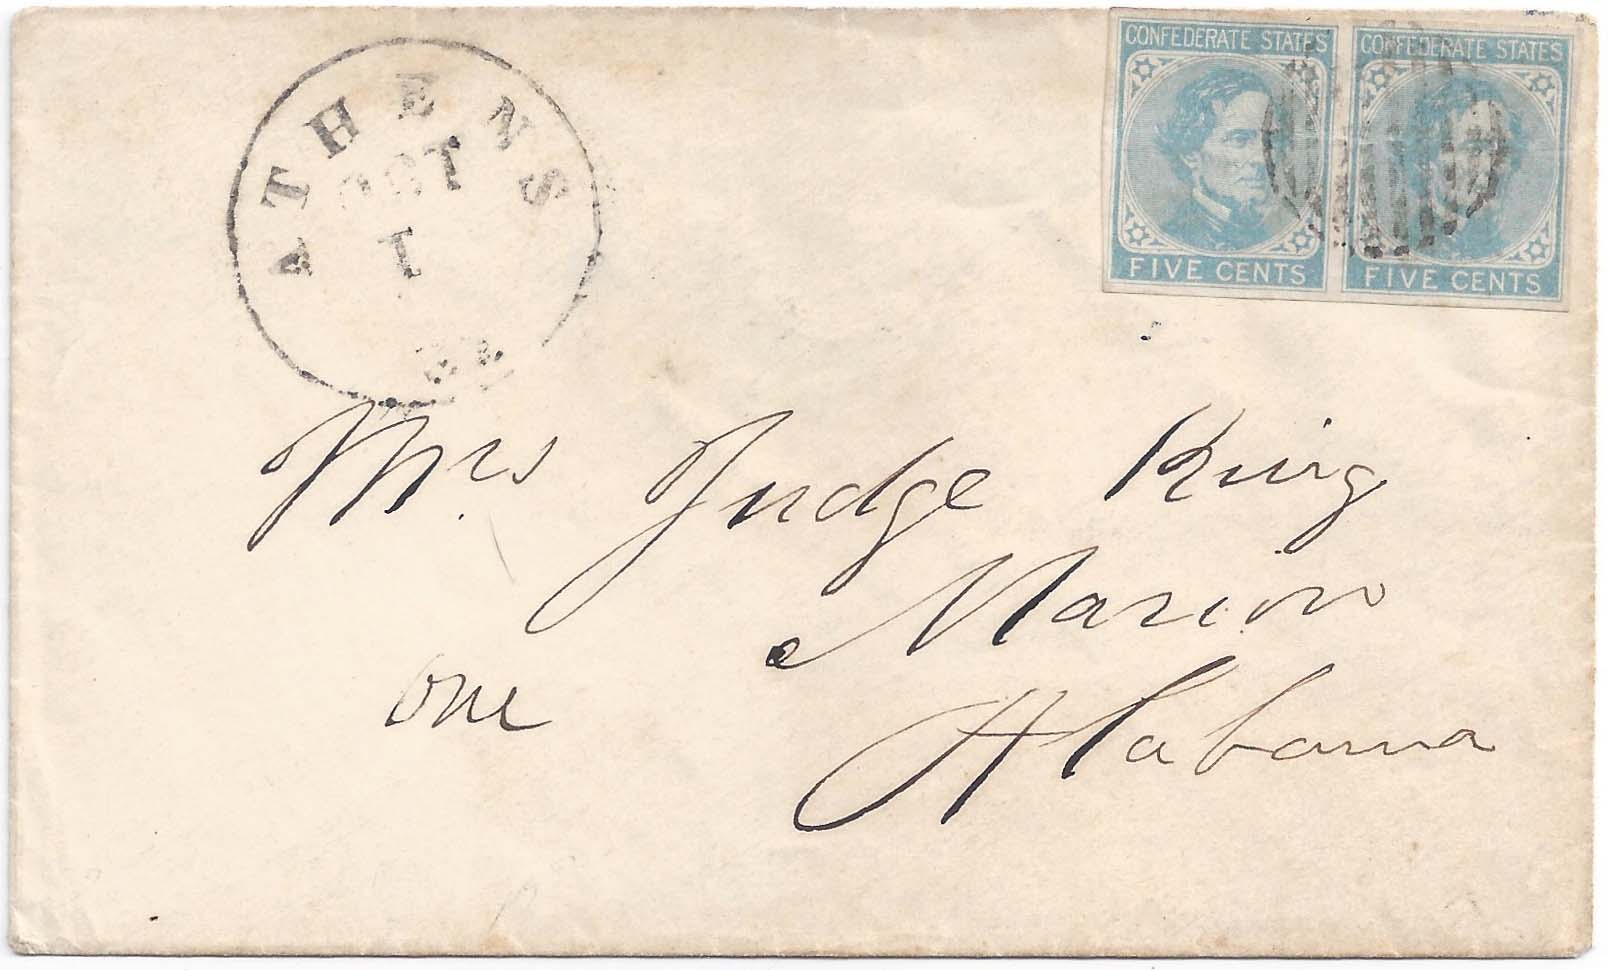 ATHENS
OCT
1
CONFEDERATE STATES
FIVE CENTS
CONFEDERATE STATES
FIVE CENTS
Mrs Judge King
Marion
Alabama
one